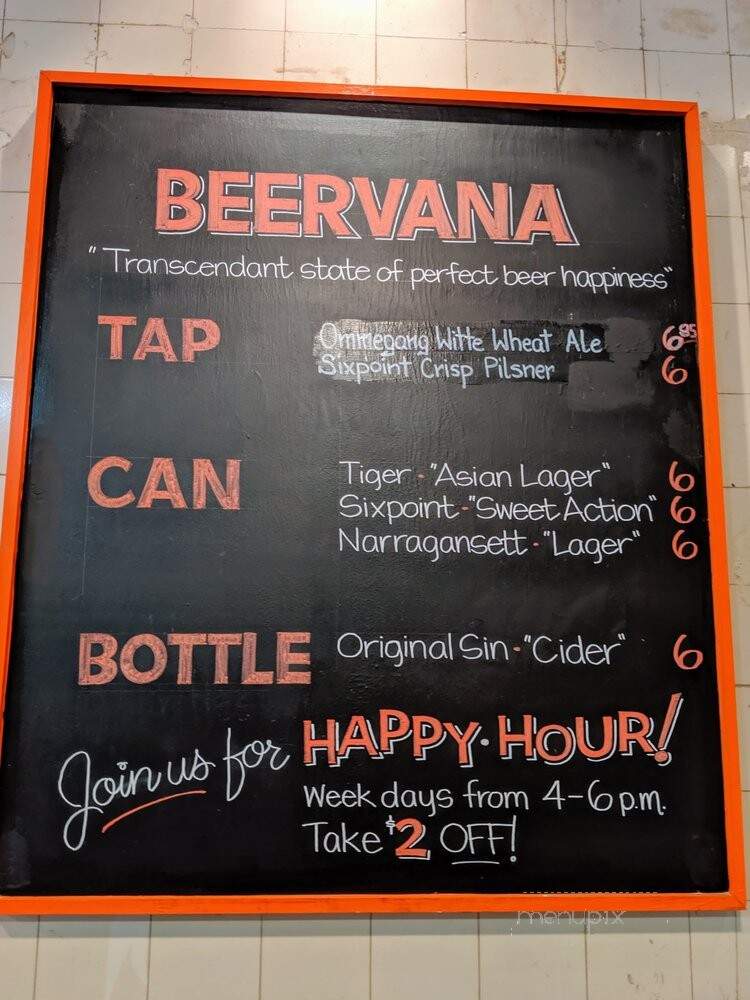 BEERVANA
"Transcendant state of perfect beer happiness"
TAP
Ommegang Witte Wheat Ale 6.95
Sixpoint Crisp Pilsner 6
CAN
Tiger · "Asian Lager" 6
Sixpoint · "Sweet Action" 6
Narragansett · "Lager" 6
BOTTLE
Original Sin · "Cider" 6
Join us for HAPPY · HOUR!
Week days from 4-6 p.m.
Take $2 OFF!
menupix